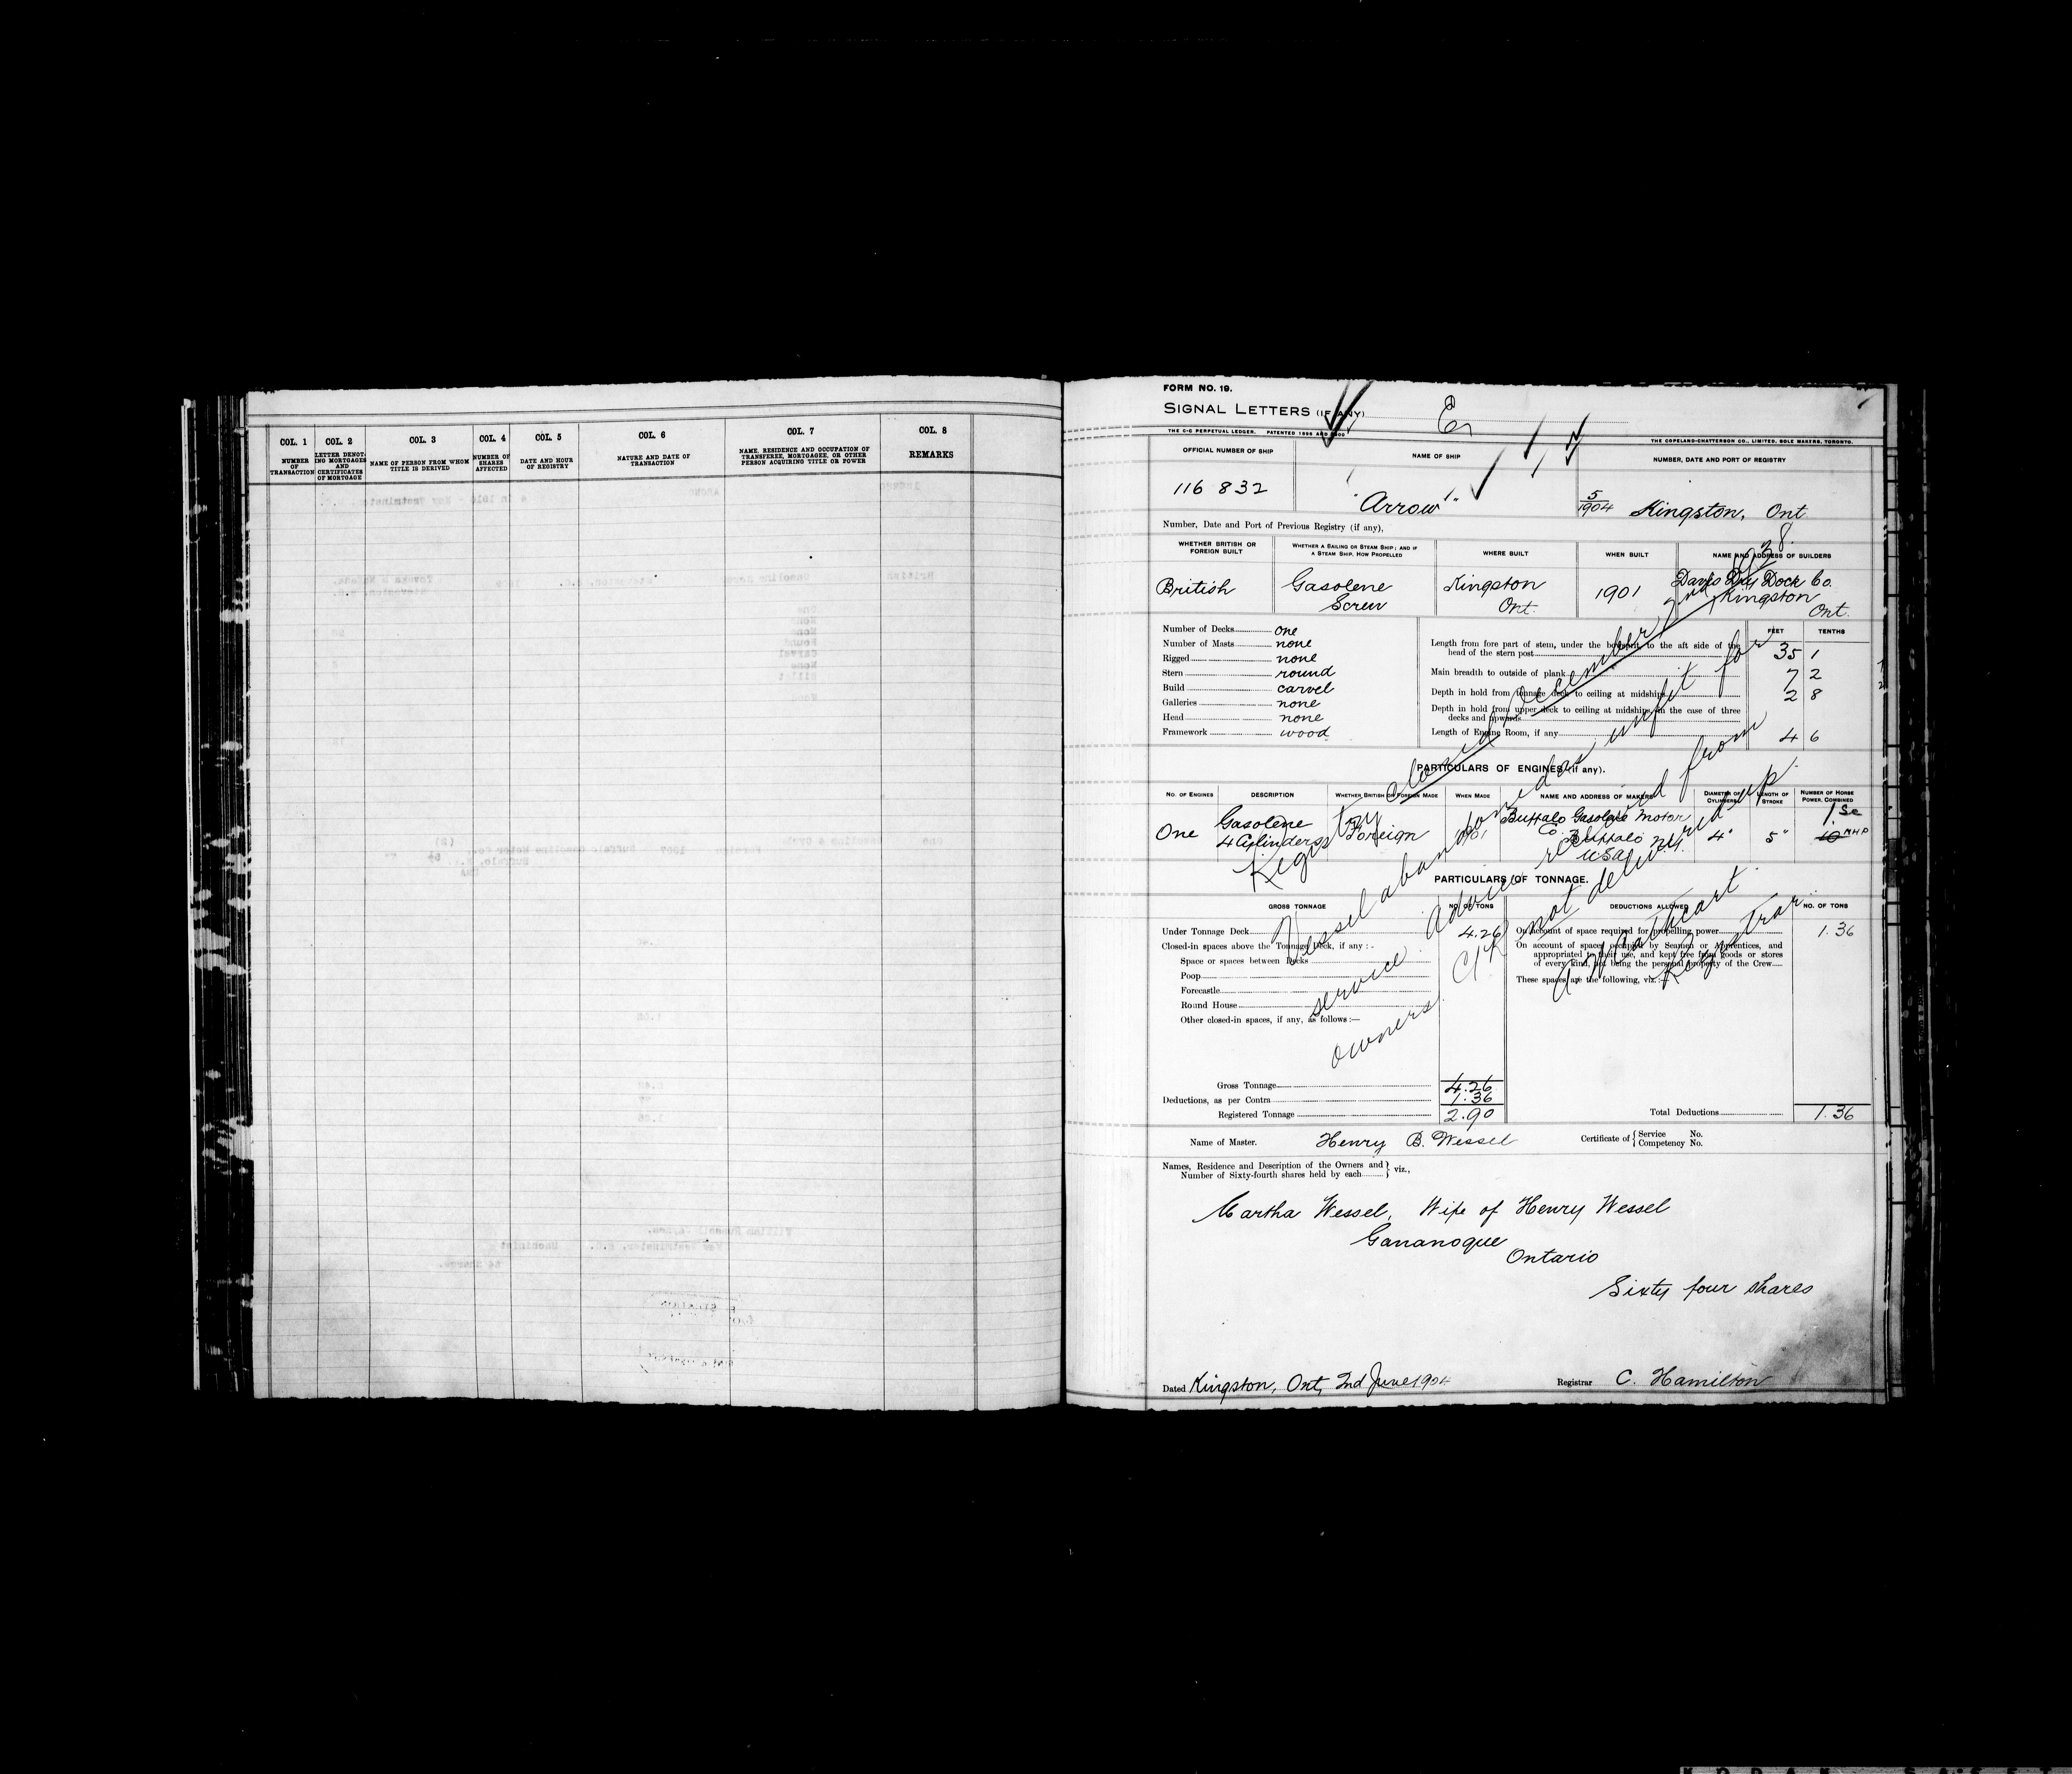 COL. 1 COL. 2 COL. 3 COL. 4 COL. 5 COL. 6 COL. 7 COL. 8
NUMBER OF TRANSACTION
LETTER DENOTING MORTGAGES AND CERTIFICATES OF MORTGAGE
NAME OF PERSON FROM WHOM TITLE IS DERIVED
NUMBER OF SHARES AFFECTED
DATE AND HOUR OF REGISTRY
NATURE AND DATE OF TRANSACTION
NAME, RESIDENCE AND OCCUPATION OF TRANSFEREE, MORTGAGEE, OR OTHER PERSON ACQUIRING TITLE OR POWER
REMARKS
FORM NO. 19.
SIGNAL LETTERS (IF ANY)
THE C-C PERPETUAL LEDGER. PATENTED 1896 AND 1900
THE COPELAND-CHATTERSON CO., LIMITED, SOLE MAKERS, TORONTO.
OFFICIAL NUMBER OF SHIP NAME OF SHIP NUMBER, DATE AND PORT OF REGISTRY
116 832 "Arrow" 5/1904 Kingston, Ont.
Number, Date and Port of Previous Registry (if any),
WHETHER BRITISH OR FOREIGN BUILT
WHETHER A SAILING OR STEAM SHIP; AND IF A STEAM SHIP, HOW PROPELLED
WHERE BUILT
WHEN BUILT
NAME AND ADDRESS OF BUILDERS
British Gasolene Screw Kingston Ont. 1901 Davis Dry Dock Co. Kingston Ont.
Number of Decks one
Number of Masts none
Rigged none
Stern round
Build carvel
Galleries none
Head none
Framework wood
FEET TENTHS
Length from fore part of stem, under the bowsprit, to the aft side of the
head of the stern post 35 1
Main breadth to outside of plank 7 2
Depth in hold from tonnage deck to ceiling at midships 2 8
Depth in hold from upper deck to ceiling at midships, in the case of three
decks and upwards
Length of Engine Room, if any 4 6
PARTICULARS OF ENGINES (if any).
NO. OF ENGINES DESCRIPTION WHETHER BRITISH OR FOREIGN MADE WHEN MADE NAME AND ADDRESS OF MAKERS DIAMETER OF CYLINDERS LENGTH OF STROKE NUMBER OF HORSE POWER, COMBINED
One Gasolene 4 Cylinders Foreign 1901 Buffalo Gasolene Motor Co. Buffalo N.Y. USA 4" 5" 10 NHP
PARTICULARS OF TONNAGE.
GROSS TONNAGE NO. OF TONS DEDUCTIONS ALLOWED NO. OF TONS
Under Tonnage Deck 4.26
Closed-in spaces above the Tonnage Deck, if any :-
Space or spaces between Decks
Poop
Forecastle
Round House
Other closed-in spaces, if any, as follows :—
On account of space required for propelling power 1.36
On account of spaces occupied by Seamen or Apprentices, and
appropriated to their use, and kept free from goods or stores
of every kind, not being the personal property of the Crew
These spaces are the following, viz. :—
Registry closed December 2nd 1938.
Vessel abandoned as unfit for
service. Advice received from
owners. C/R not delivered up.
Cathcart
Registrar
Gross Tonnage 4.26
Deductions, as per Contra 1.36
Registered Tonnage 2.90
Total Deductions 1.36
Name of Master. Henry B. Wessel
Certificate of { Service No.
Competency No.
Names, Residence and Description of the Owners and
Number of Sixty-fourth shares held by each } viz.,
Martha Wessel, Wife of Henry Wessel
Gananoque
Ontario
Sixty four shares
Dated Kingston, Ont, 2nd June 1904 Registrar C. Hamilton